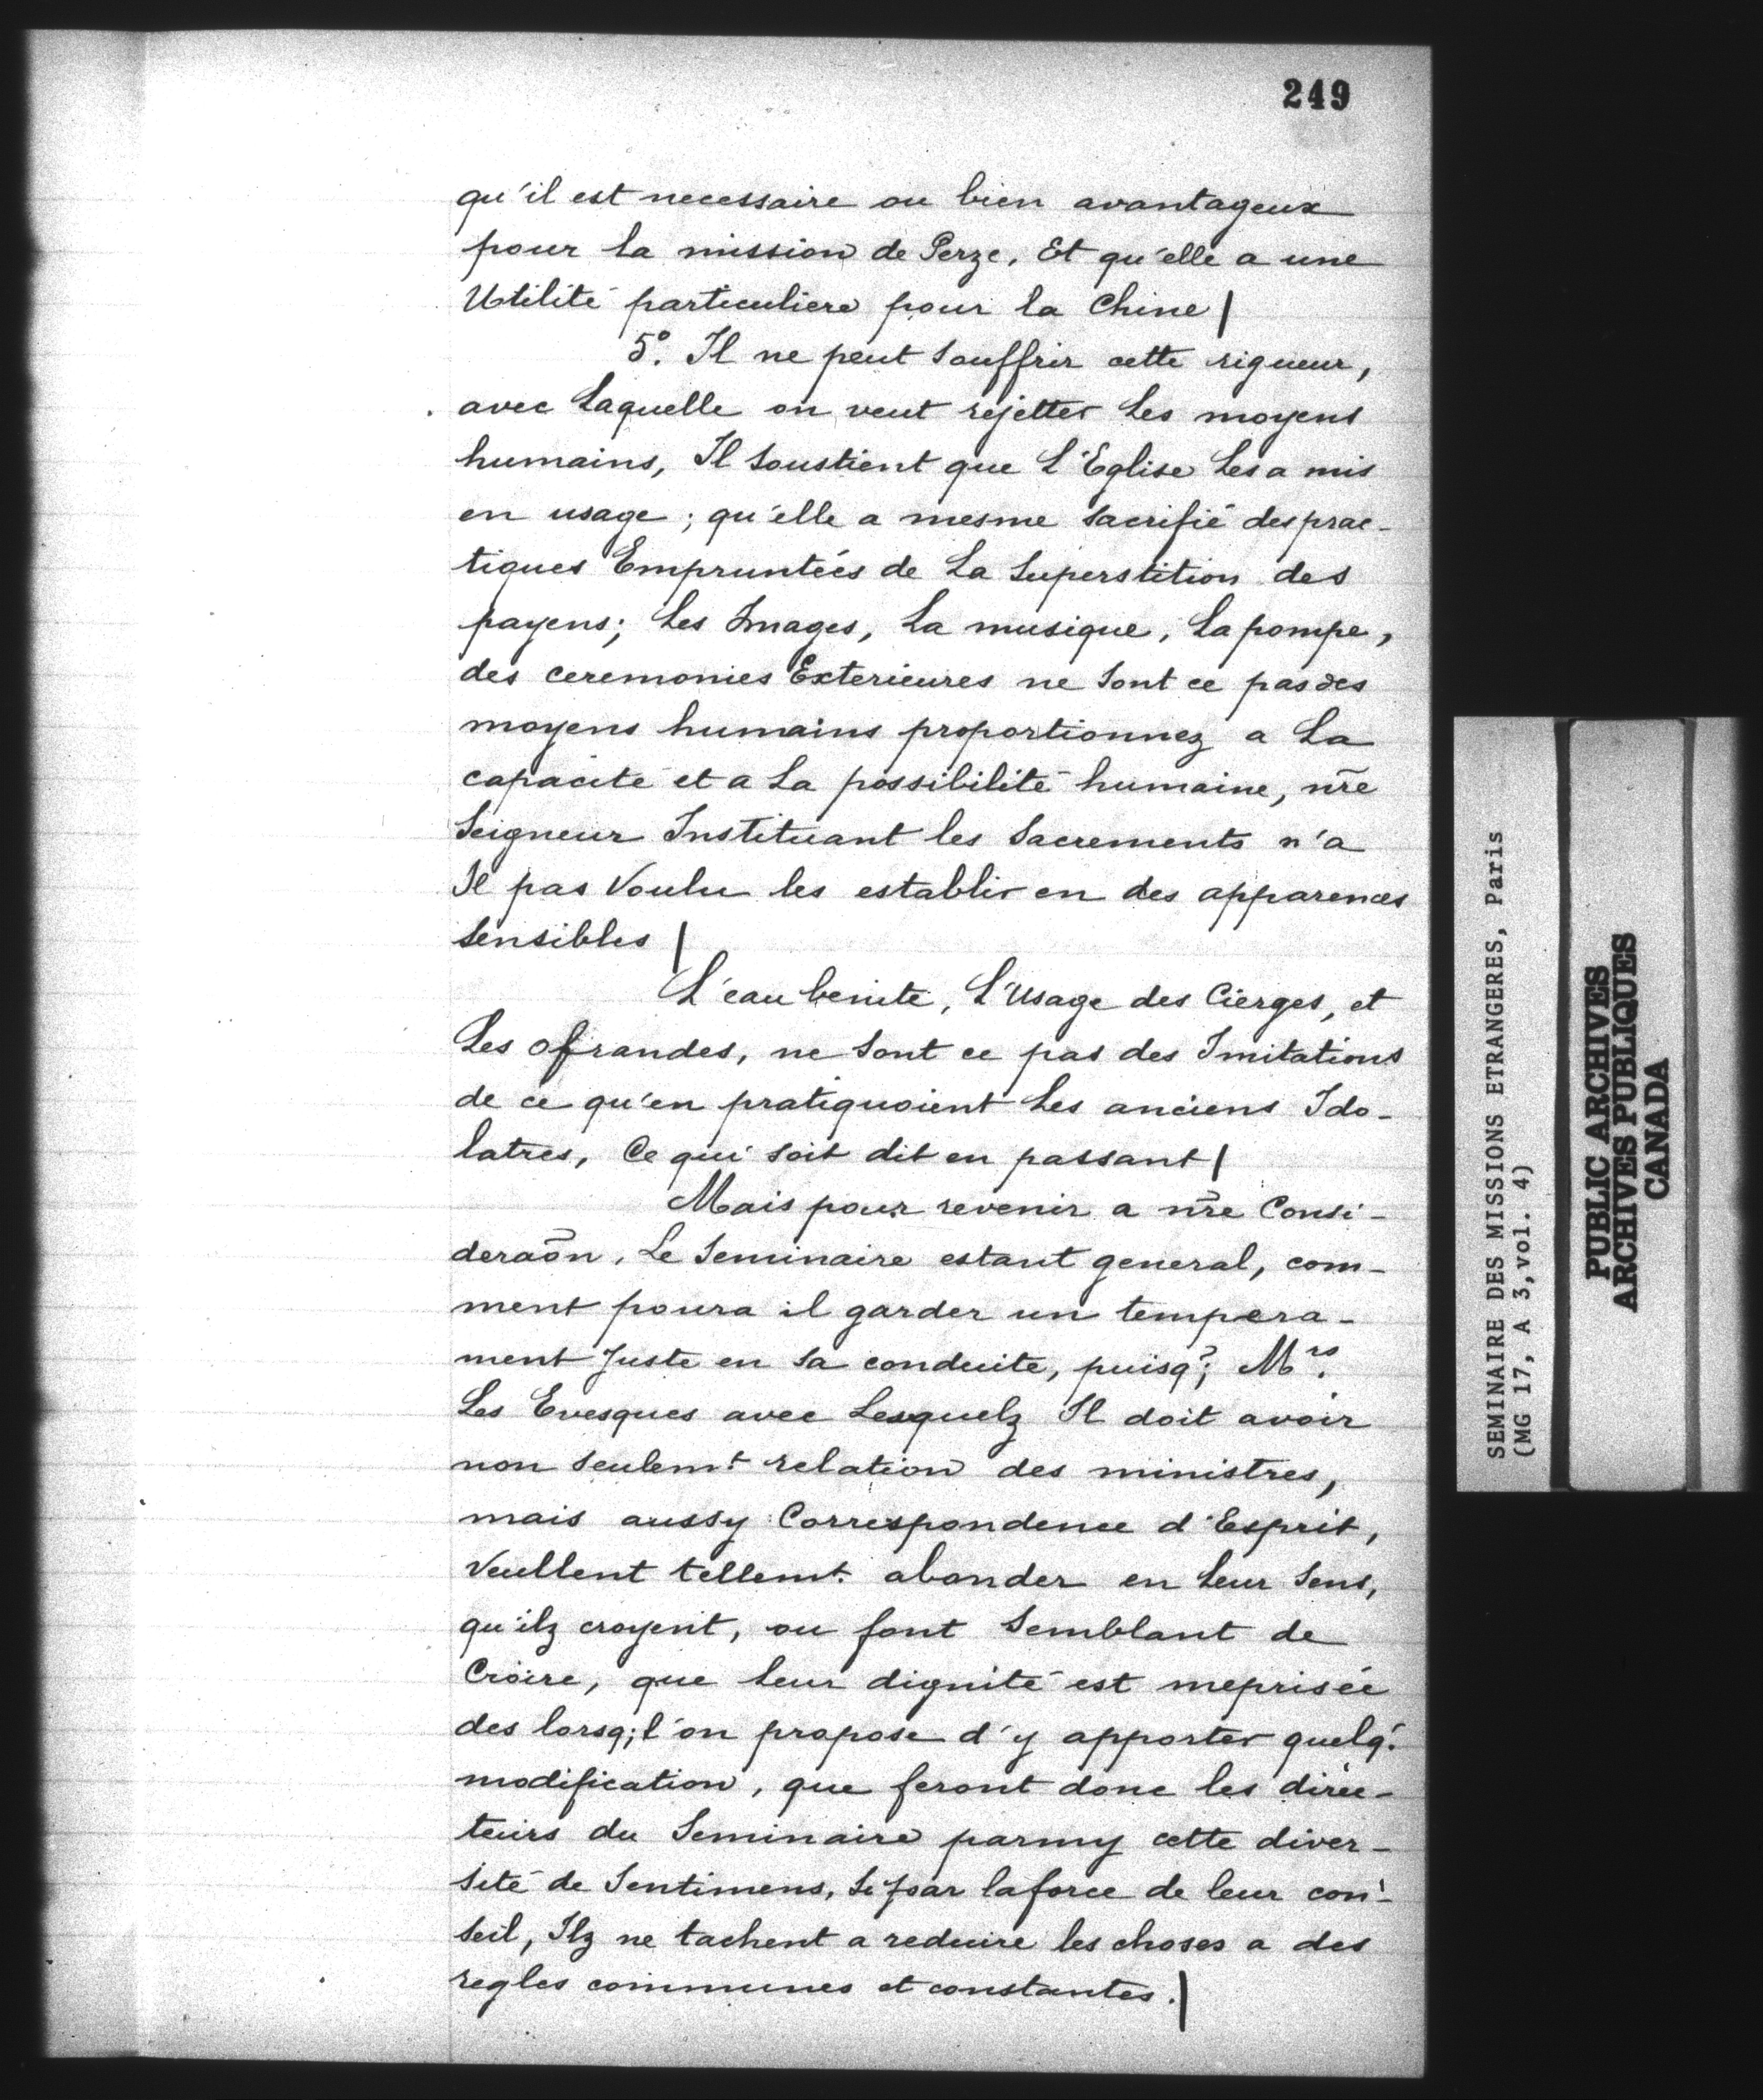 249
qu'il est necessaire ou bien avantageux
pour la mission de Perze, Et qu'elle a une
Utilité particuliere pour la Chine |
5°. Il ne peut souffrir cette rigueur,
avec Laquelle on veut rejetter Les moyens
humains, Il soustient que L'Eglise Les a mis
en usage ; qu'elle a mesme sacrifié des prac-
tiques Empruntées de La Superstition des
payens; Les Images, La musique, La pompe,
des ceremonies Exterieures ne sont ce pas des
moyens humains proportionnez a La
capacité et a La possibilité humaine, nr̃e
Seigneur Instituant les Sacrements n'a
Il pas Voulu les establir en des apparences
sensibles |
L'eau benite, L'Usage des Cierges, et
Les ofrandes, ne sont ce pas des Imitations
de ce qu'en pratiquoient Les anciens Ido-
latres, Ce qui soit dit en passant |
Mais pour revenir a nr̃e Consi-
deraõn, Le Seminaire estant general, com-
ment poura il garder un tempera-
ment Juste en sa conduite, puisq?; Mrs.
Les Evesques avec Lesquelz Il doit avoir
non seulemt relation des ministres,
mais aussy Correspondence d'Esprit,
Veullent tellemt. abonder en Leur Sens,
qu'ilz croyent, ou font Semblant de
Croire, que leur dignité est meprisée
des lorsq; l'on propose d'y apporter quelq.
modification, que feront donc les direc-
teurs du Seminaire parmy cette diver-
sité de Sentimens, Si par la force de leur con-
seil, Ilz ne tachent a reduire les choses a des
regles communes et constantes. |
SEMINAIRE DES MISSIONS ETRANGERES, Paris
(MG 17, A 3,vol. 4)
PUBLIC ARCHIVES
ARCHIVES PUBLIQUES
CANADA